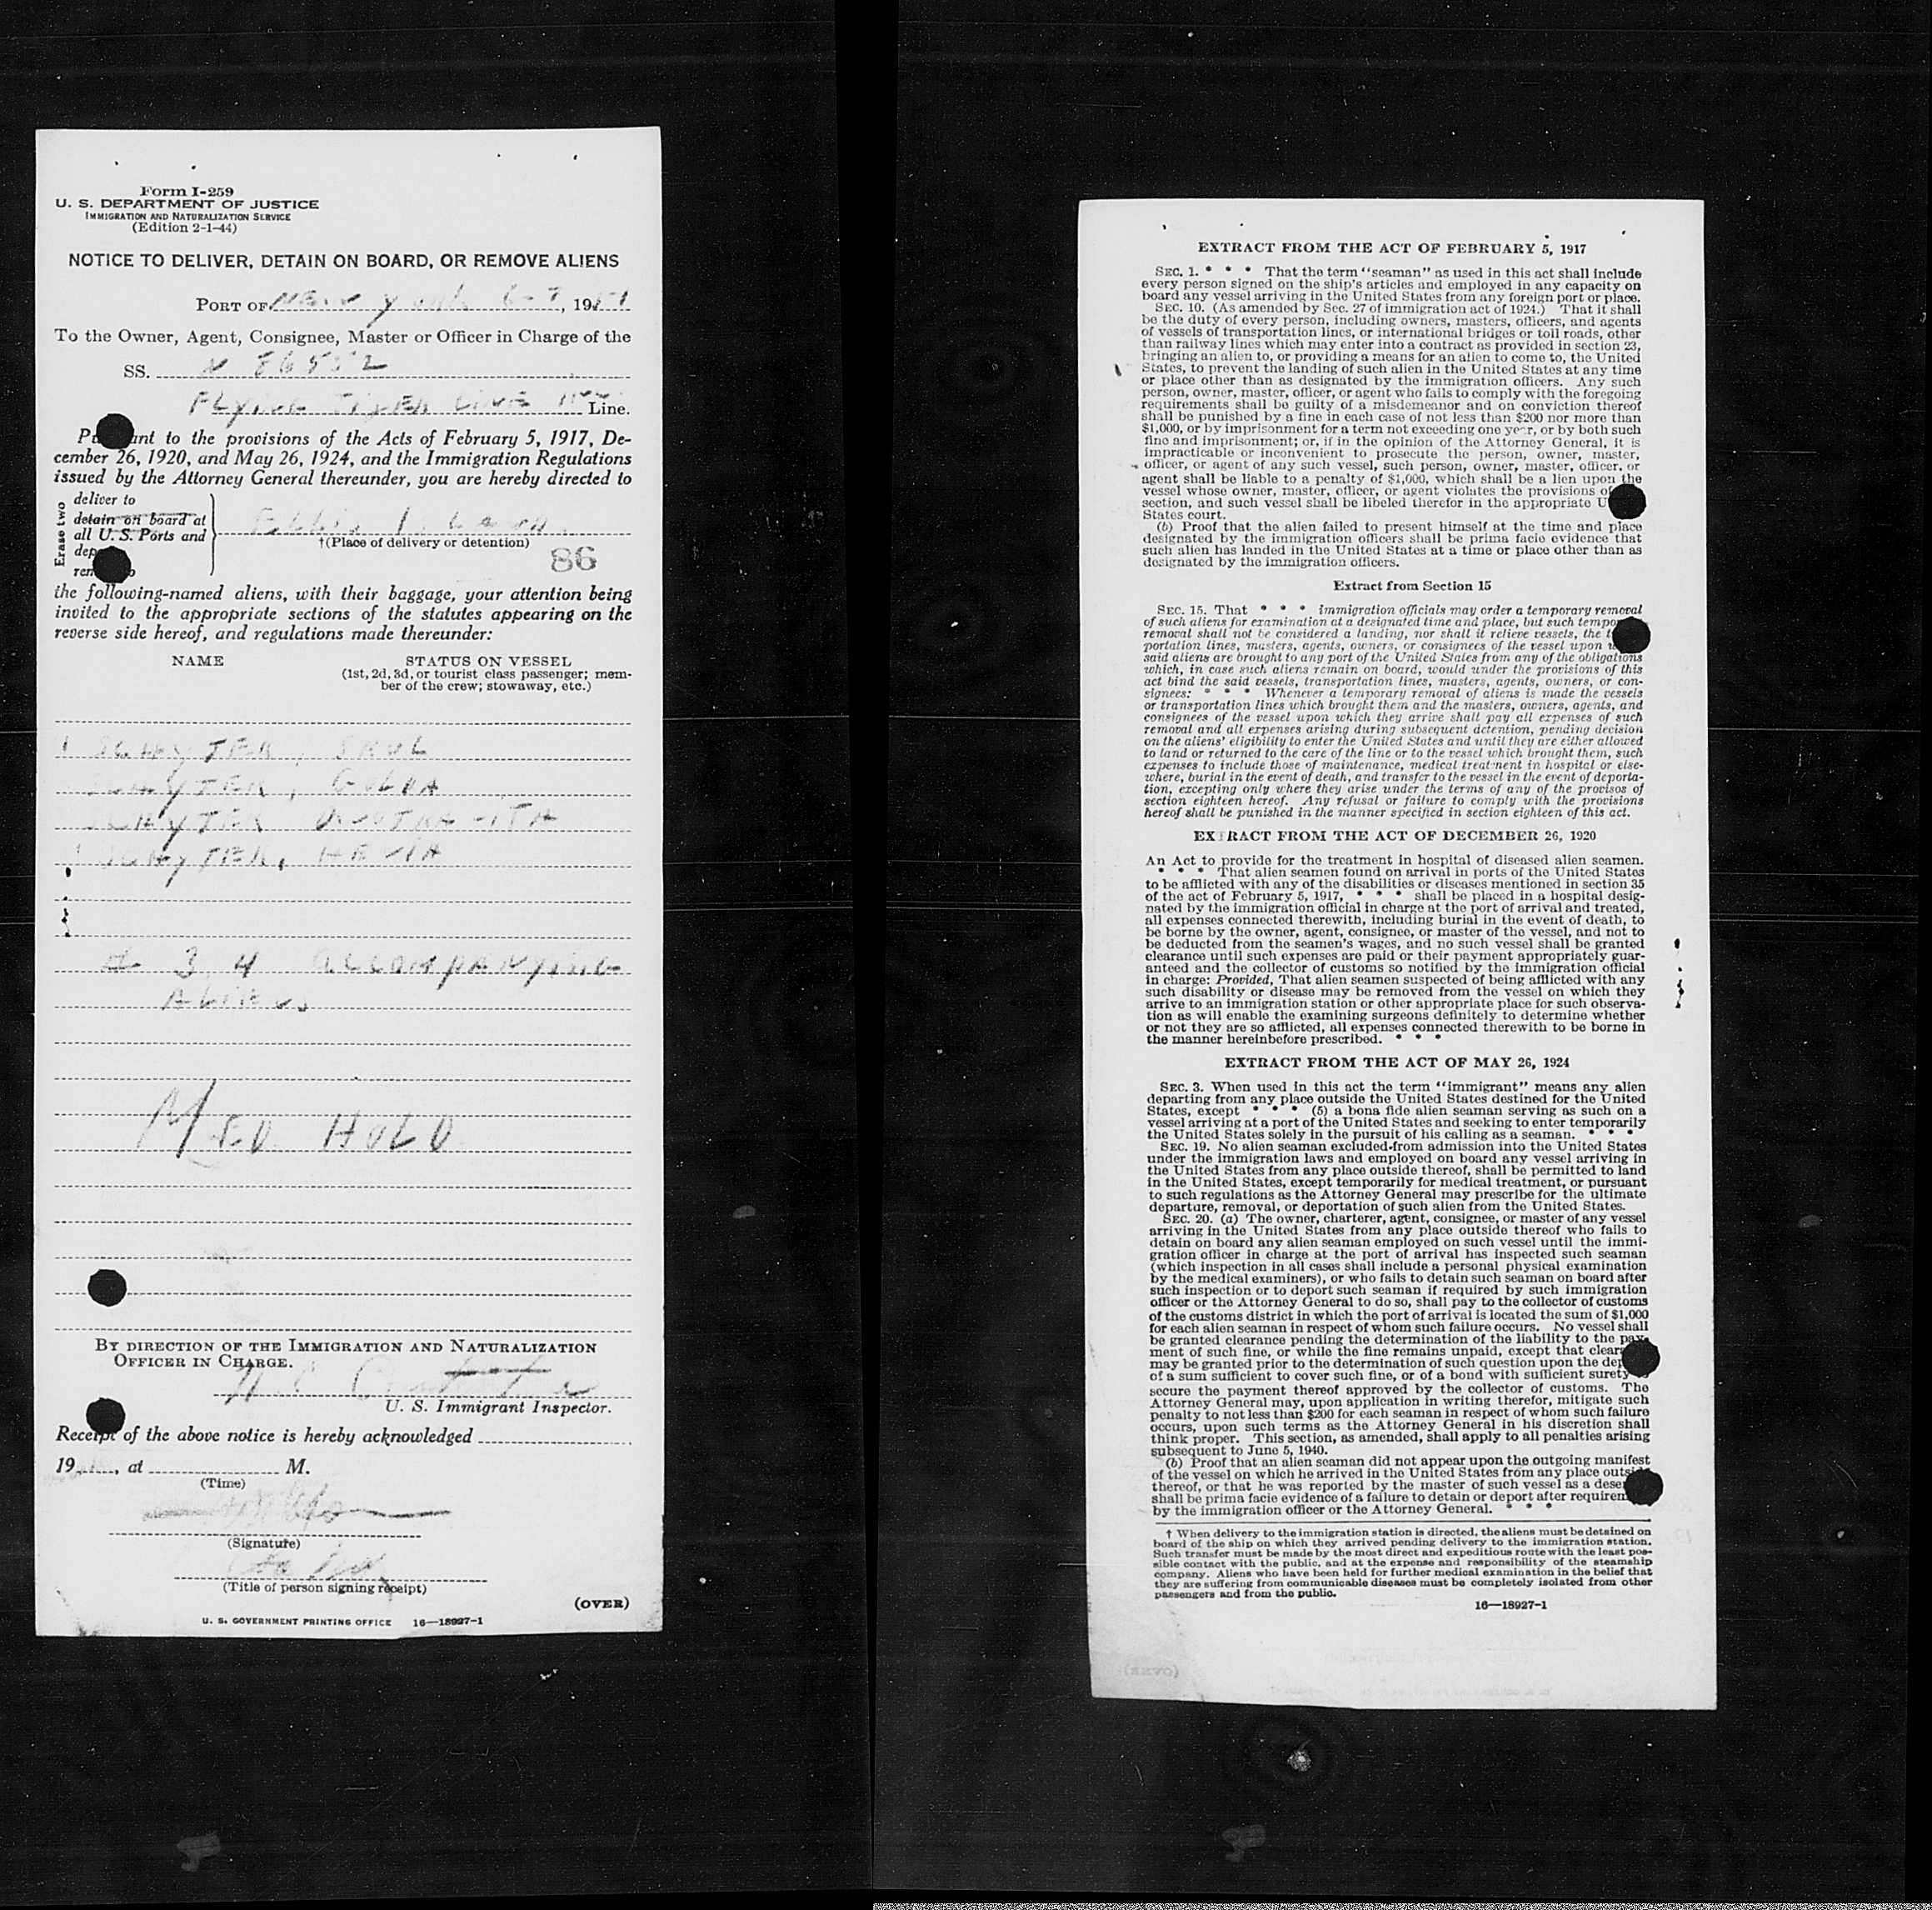 Form I-259
U. S. DEPARTMENT OF JUSTICE
IMMIGRATION AND NATURALIZATION SERVICE
(Edition 2-1-44)
NOTICE TO DELIVER, DETAIN ON BOARD, OR REMOVE ALIENS
PORT OF New York 6-7, 1951
To the Owner, Agent, Consignee, Master or Officer in Charge of the
SS. N 86552
FLYING TIGER LINE INC Line.
Pu ant to the provisions of the Acts of February 5, 1917, De-
cember 26, 1920, and May 26, 1924, and the Immigration Regulations
issued by the Attorney General thereunder, you are hereby directed to
Erase two
deliver to
detain on board at
all U. S. Ports and
dep
rem
Ellis Island
†(Place of delivery or detention)
86
the following-named aliens, with their baggage, your attention being
invited to the appropriate sections of the statutes appearing on the
reverse side hereof, and regulations made thereunder:
NAME
STATUS ON VESSEL
(1st, 2d, 3d, or tourist class passenger; mem-
ber of the crew; stowaway, etc.)
SCHYTER, SRUL
SCHYTER, GOLDA
SCHYTER
SCHYTER,
3, 4 ACCOMPANYING
ALIENS
MED HOLD
BY DIRECTION OF THE IMMIGRATION AND NATURALIZATION
OFFICER IN CHARGE.
U. S. Immigrant Inspector.
Receipt of the above notice is hereby acknowledged
19 , at M.
(Time)
(Signature)
(Title of person signing receipt)
(OVER)
U. S. GOVERNMENT PRINTING OFFICE 16—18927-1
EXTRACT FROM THE ACT OF FEBRUARY 5, 1917
SEC. 1. * * * That the term "seaman" as used in this act shall include
every person signed on the ship's articles and employed in any capacity on
board any vessel arriving in the United States from any foreign port or place.
SEC. 10. (As amended by Sec. 27 of immigration act of 1924.) That it shall
be the duty of every person, including owners, masters, officers, and agents
of vessels of transportation lines, or international bridges or toll roads, other
than railway lines which may enter into a contract as provided in section 23,
bringing an alien to, or providing a means for an alien to come to, the United
States, to prevent the landing of such alien in the United States at any time
or place other than as designated by the immigration officers. Any such
person, owner, master, officer, or agent who fails to comply with the foregoing
requirements shall be guilty of a misdemeanor and on conviction thereof
shall be punished by a fine in each case of not less than $200 nor more than
$1,000, or by imprisonment for a term not exceeding one year, or by both such
fine and imprisonment; or, if in the opinion of the Attorney General, it is
impracticable or inconvenient to prosecute the person, owner, master,
officer, or agent of any such vessel, such person, owner, master, officer, or
agent shall be liable to a penalty of $1,000, which shall be a lien upon the
vessel whose owner, master, officer, or agent violates the provisions of
section, and such vessel shall be libeled therefor in the appropriate U
States court.
(b) Proof that the alien failed to present himself at the time and place
designated by the immigration officers shall be prima facie evidence that
such alien has landed in the United States at a time or place other than as
designated by the immigration officers.
Extract from Section 15
SEC. 15. That * * * immigration officials may order a temporary removal
of such aliens for examination at a designated time and place, but such tempo
removal shall not be considered a landing, nor shall it relieve vessels, the t
portation lines, masters, agents, owners, or consignees of the vessel upon w
said aliens are brought to any port of the United States from any of the obligations
which, in case such aliens remain on board, would under the provisions of this
act bind the said vessels, transportation lines, masters, agents, owners, or con-
signees: * * * Whenever a temporary removal of aliens is made the vessels
or transportation lines which brought them and the masters, owners, agents, and
consignees of the vessel upon which they arrive shall pay all expenses of such
removal and all expenses arising during subsequent detention, pending decision
on the aliens' eligibility to enter the United States and until they are either allowed
to land or returned to the care of the line or to the vessel which brought them, such
expenses to include those of maintenance, medical treatment in hospital or else-
where, burial in the event of death, and transfer to the vessel in the event of deporta-
tion, excepting only where they arise under the terms of any of the provisos of
section eighteen hereof. Any refusal or failure to comply with the provisions
hereof shall be punished in the manner specified in section eighteen of this act.
EXTRACT FROM THE ACT OF DECEMBER 26, 1920
An Act to provide for the treatment in hospital of diseased alien seamen.
* * * That alien seamen found on arrival in ports of the United States
to be afflicted with any of the disabilities or diseases mentioned in section 35
of the act of February 5, 1917, * * * shall be placed in a hospital desig-
nated by the immigration official in charge at the port of arrival and treated,
all expenses connected therewith, including burial in the event of death, to
be borne by the owner, agent, consignee, or master of the vessel, and not to
be deducted from the seamen's wages, and no such vessel shall be granted
clearance until such expenses are paid or their payment appropriately guar-
anteed and the collector of customs so notified by the immigration official
in charge: Provided, That alien seamen suspected of being afflicted with any
such disability or disease may be removed from the vessel on which they
arrive to an immigration station or other appropriate place for such observa-
tion as will enable the examining surgeons definitely to determine whether
or not they are so afflicted, all expenses connected therewith to be borne in
the manner hereinbefore prescribed. * * *
EXTRACT FROM THE ACT OF MAY 26, 1924
SEC. 3. When used in this act the term "immigrant" means any alien
departing from any place outside the United States destined for the United
States, except * * * (5) a bona fide alien seaman serving as such on a
vessel arriving at a port of the United States and seeking to enter temporarily
the United States solely in the pursuit of his calling as a seaman. * * *
SEC. 19. No alien seaman excluded from admission into the United States
under the immigration laws and employed on board any vessel arriving in
the United States from any place outside thereof, shall be permitted to land
in the United States, except temporarily for medical treatment, or pursuant
to such regulations as the Attorney General may prescribe for the ultimate
departure, removal, or deportation of such alien from the United States.
SEC. 20. (a) The owner, charterer, agent, consignee, or master of any vessel
arriving in the United States from any place outside thereof who fails to
detain on board any alien seaman employed on such vessel until the immi-
gration officer in charge at the port of arrival has inspected such seaman
(which inspection in all cases shall include a personal physical examination
by the medical examiners), or who fails to detain such seaman on board after
such inspection or to deport such seaman if required by such immigration
officer or the Attorney General to do so, shall pay to the collector of customs
of the customs district in which the port of arrival is located the sum of $1,000
for each alien seaman in respect of whom such failure occurs. No vessel shall
be granted clearance pending the determination of the liability to the pay-
ment of such fine, or while the fine remains unpaid, except that clear
may be granted prior to the determination of such question upon the dep
of a sum sufficient to cover such fine, or of a bond with sufficient surety
secure the payment thereof approved by the collector of customs. The
Attorney General may, upon application in writing therefor, mitigate such
penalty to not less than $200 for each seaman in respect of whom such failure
occurs, upon such terms as the Attorney General in his discretion shall
think proper. This section, as amended, shall apply to all penalties arising
subsequent to June 5, 1940.
(b) Proof that an alien seaman did not appear upon the outgoing manifest
of the vessel on which he arrived in the United States from any place outside
thereof, or that he was reported by the master of such vessel as a dese
shall be prima facie evidence of a failure to detain or deport after requirem
by the immigration officer or the Attorney General. * * *
† When delivery to the immigration station is directed, the aliens must be detained on
board of the ship on which they arrived pending delivery to the immigration station.
Such transfer must be made by the most direct and expeditious route with the least pos-
sible contact with the public, and at the expense and responsibility of the steamship
company. Aliens who have been held for further medical examination in the belief that
they are suffering from communicable diseases must be completely isolated from other
passengers and from the public.
16—18927-1